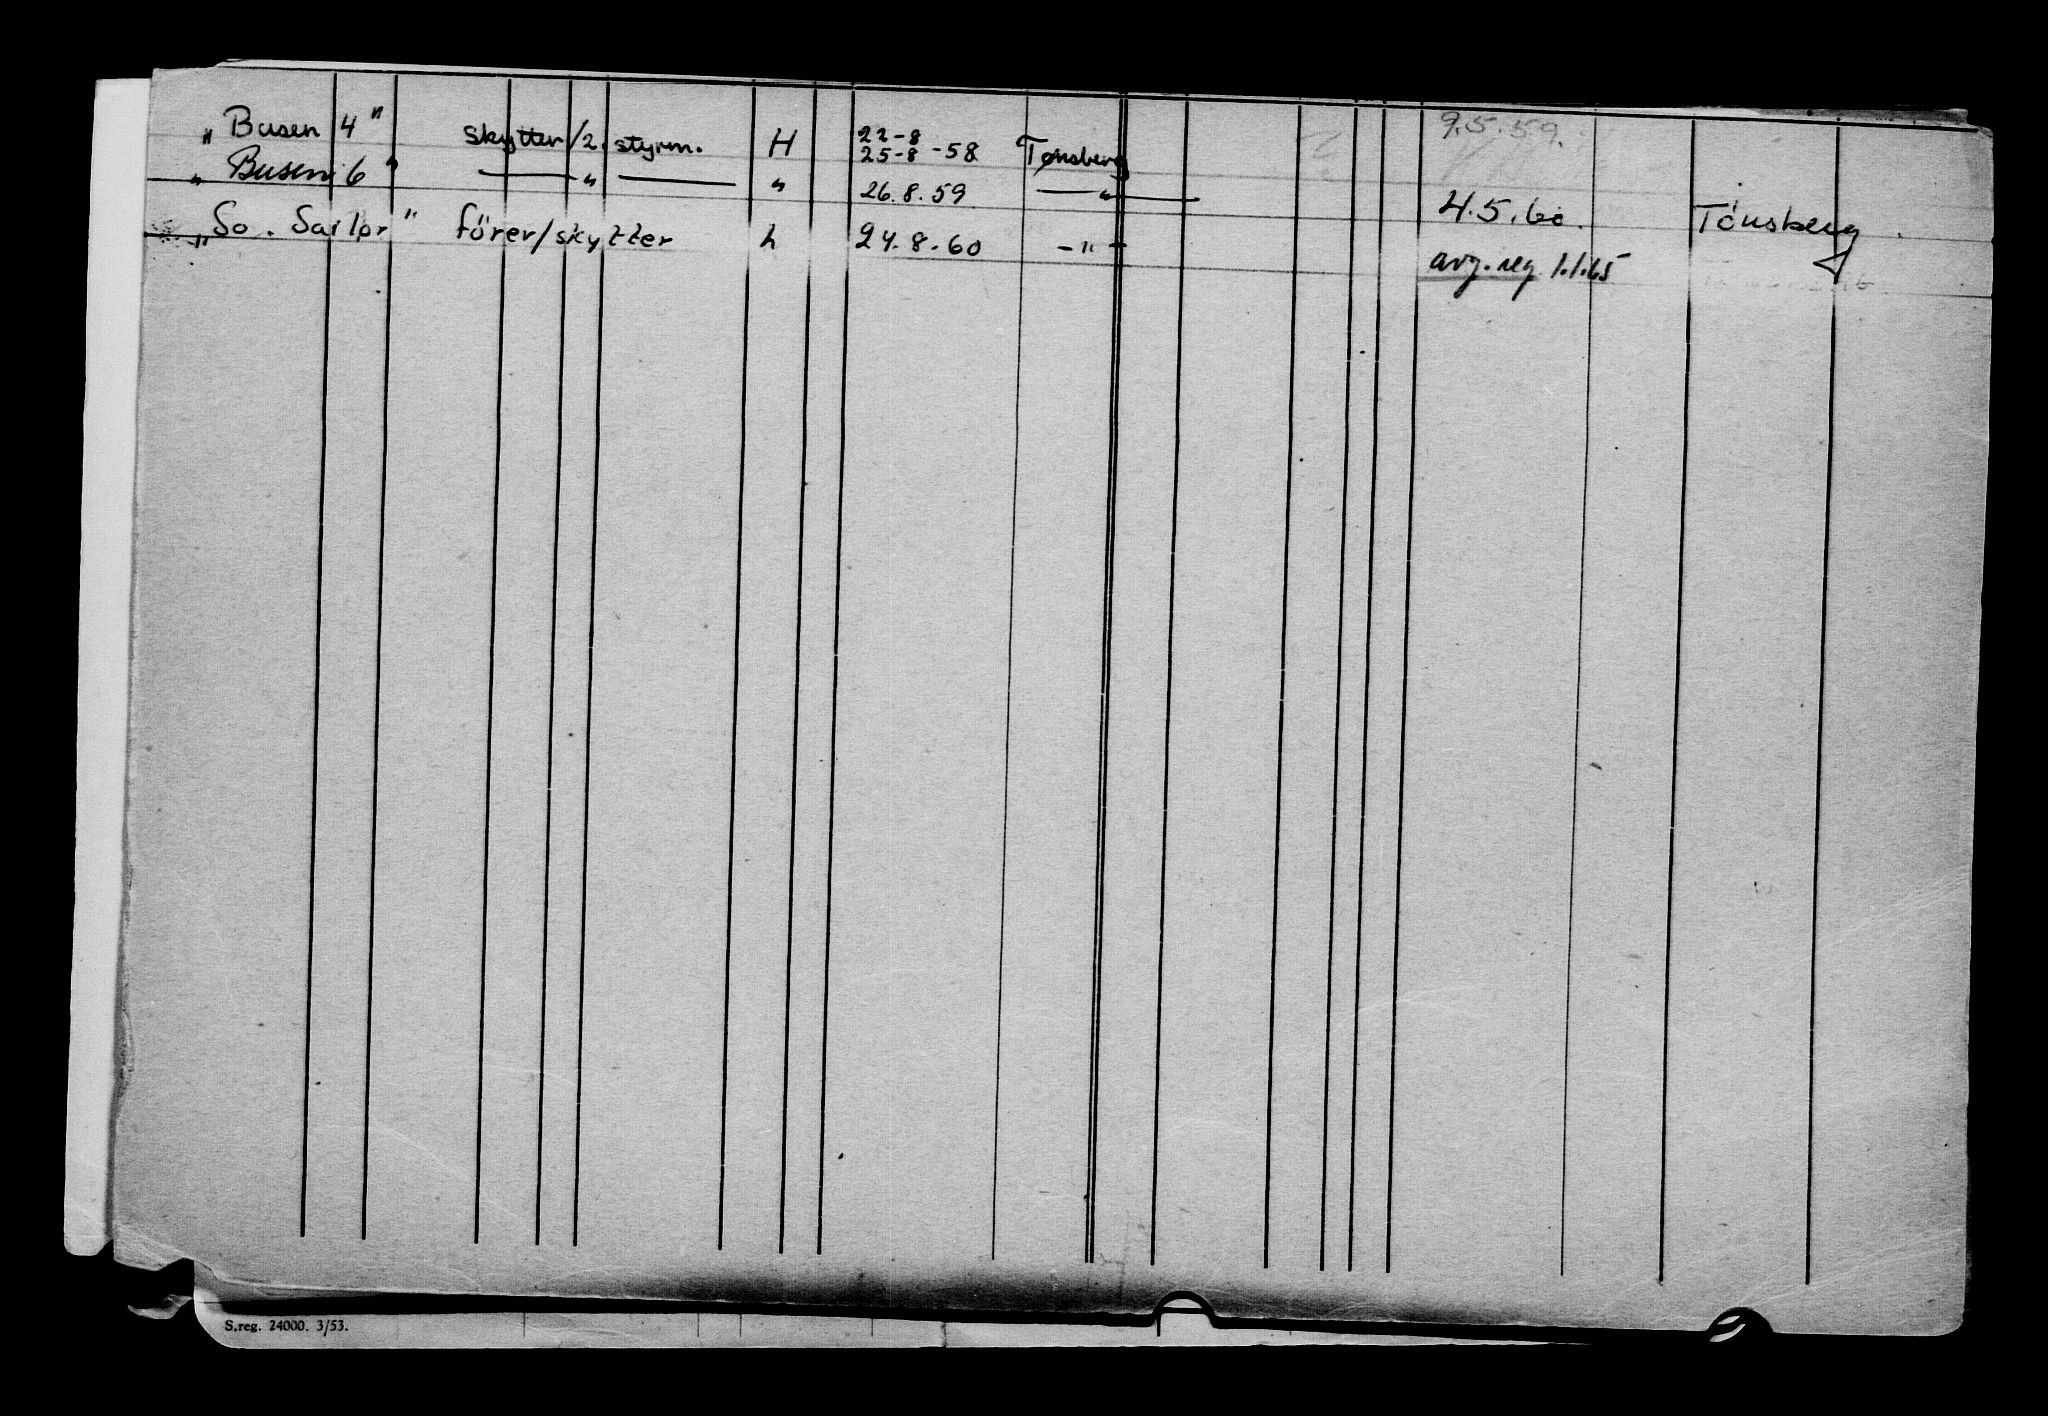 „Busen 4” skytter/2. styrm. H 22-8 25-8 -58 Tønsberg 9.5.59.
„Busen 6” —— „ —— „ 26.8.59 — „ — 4.5.60. Tönsberg
„So. Sailor” förer/skytter h 24.8.60 - „ - avg. reg 1.1.65
S.reg. 24000. 3/53.